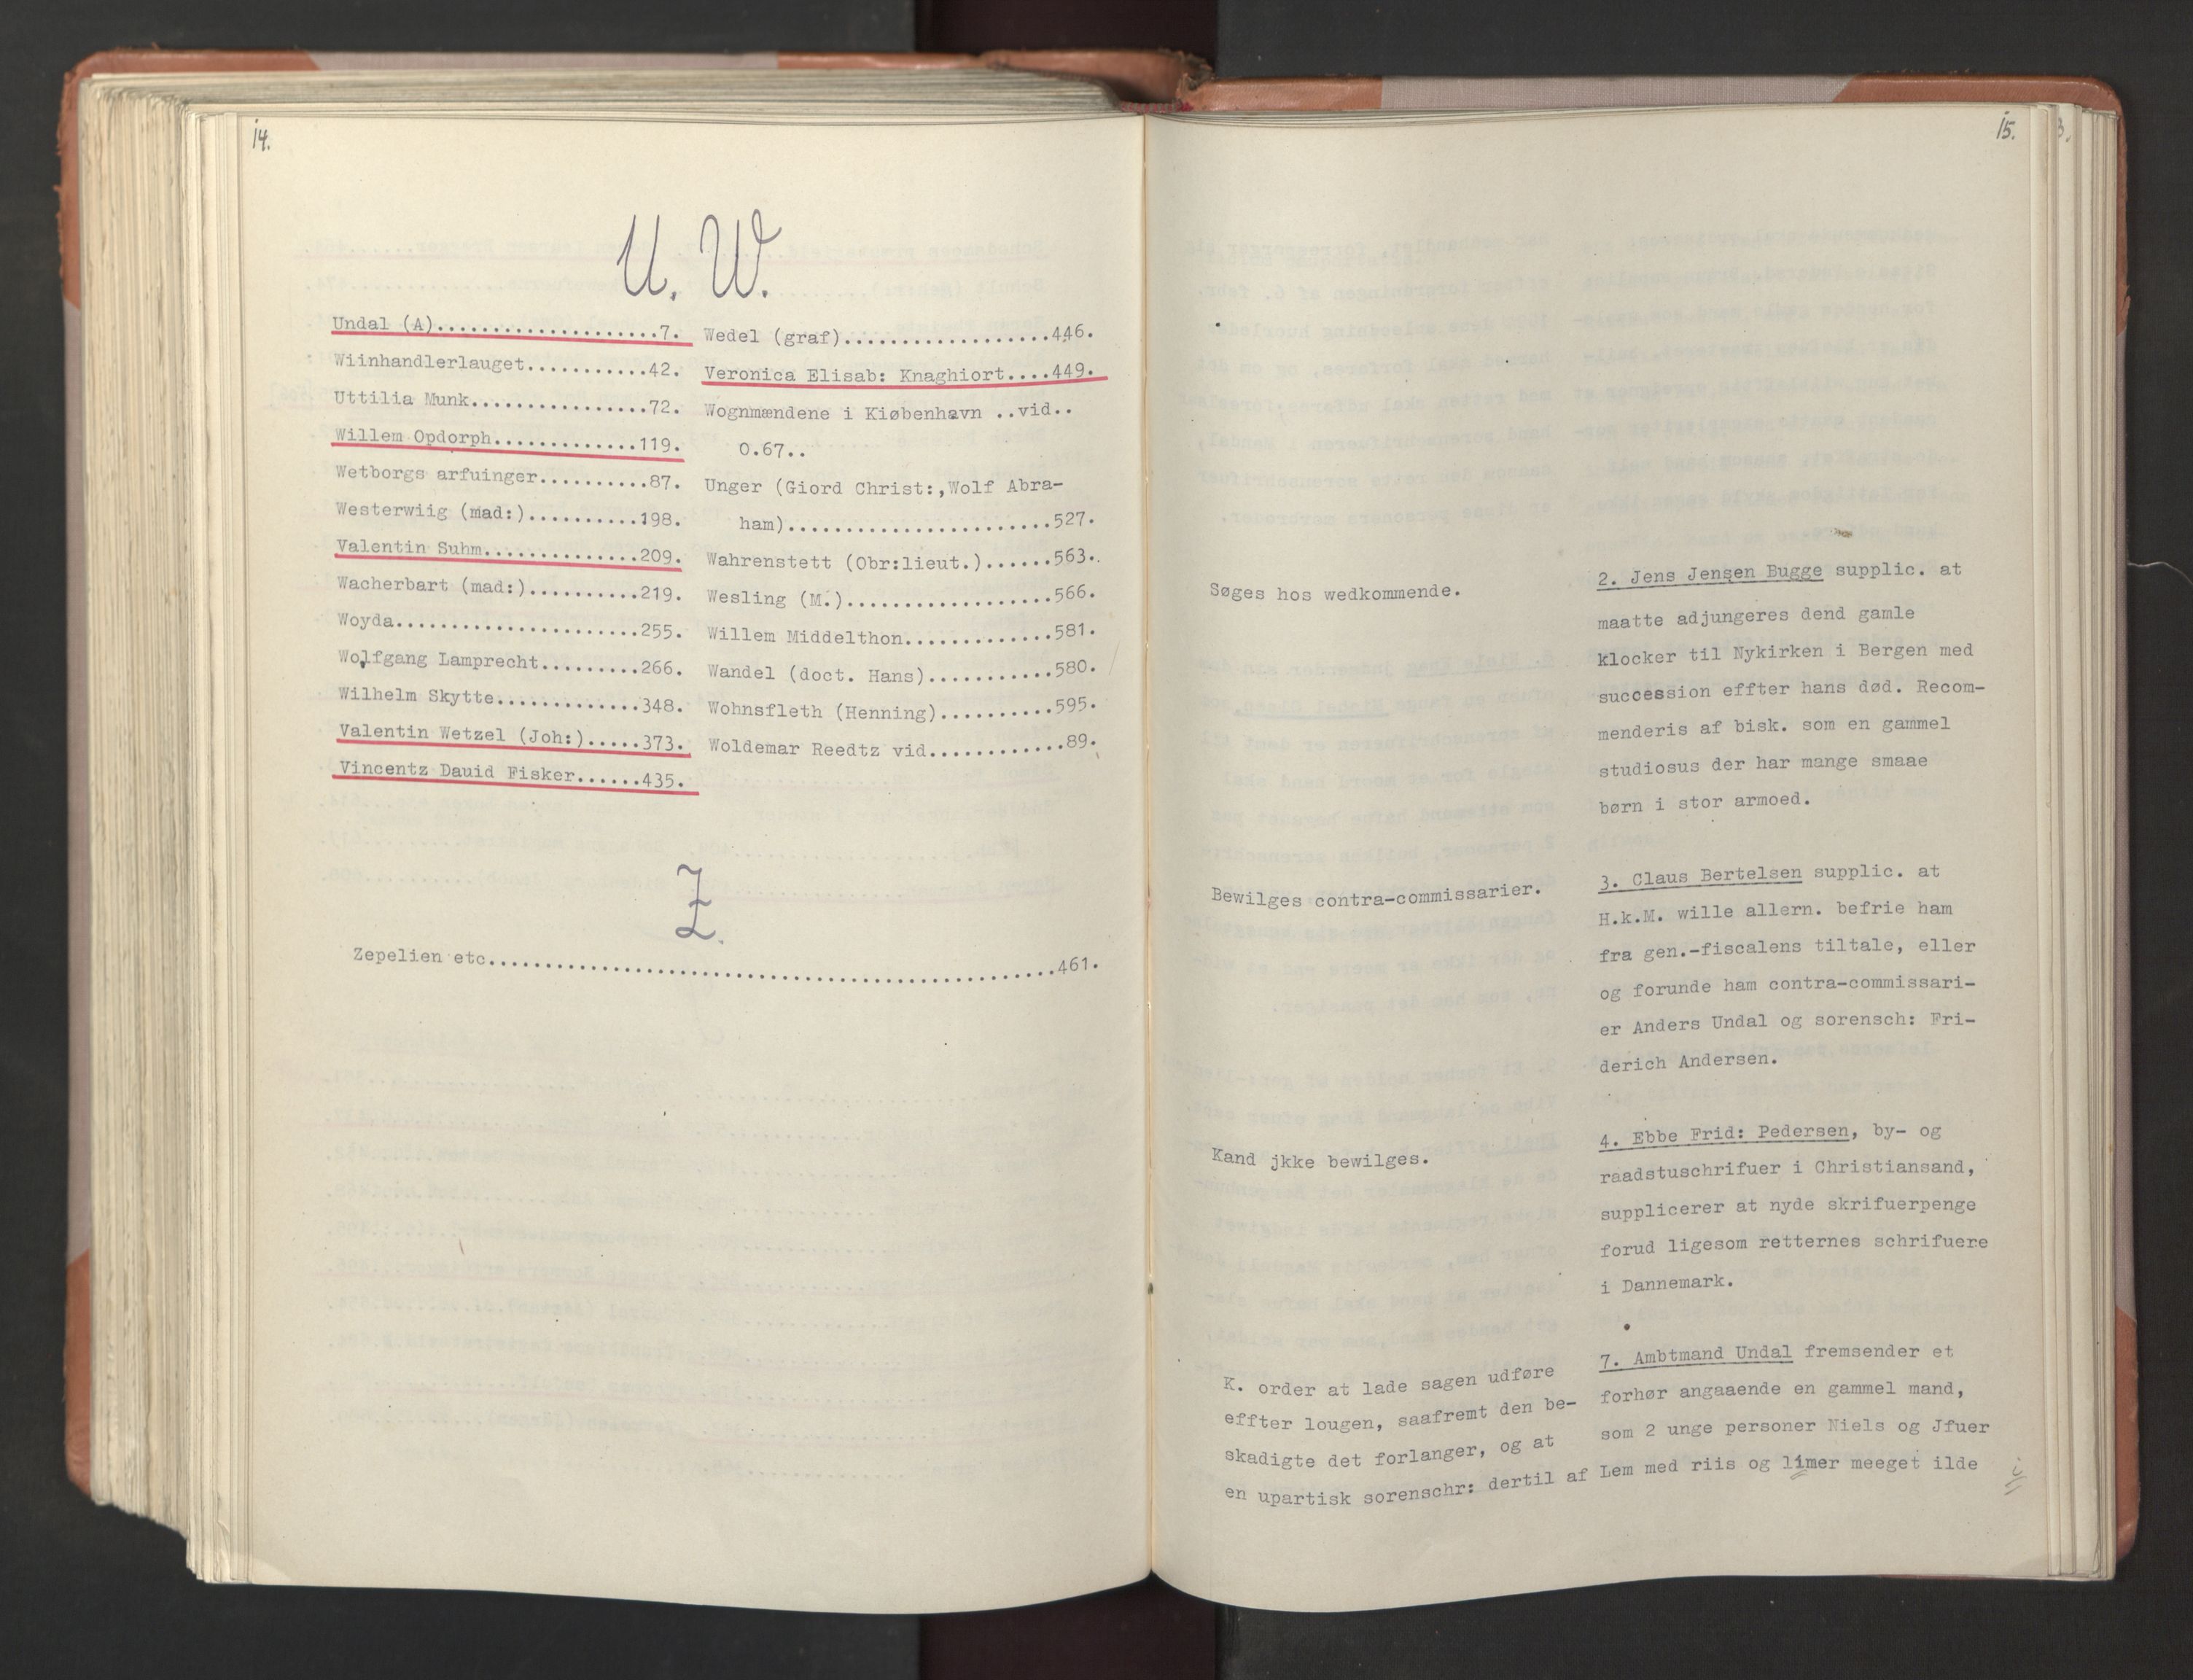 14.
U. W.
Undal (A)....................7.
Wiinhandlerlauget...........42.
Uttilia Munk................72.
Willem Opdorph.............119.
Wetborgs arfuinger..........87.
Westerwiig (mad:)..........198.
Valentin Suhm..............209.
Wacherbart (mad:)..........219.
Woyda......................255.
Wolfgang Lamprecht.........266.
Wilhelm Skytte.............348.
Valentin Wetzel (Joh:).....373.
Vincentz Dauid Fisker......435.
Wedel (graf)...................446.
Veronica Elisab: Knaghiort....449.
Wognmændene i Kiøbenhavn ..vid..
O.67..
Unger (Giord Christ:,Wolf Abra-
ham)........................527.
Wahrenstett (Obr:lieut.)......563.
Wesling (M.)...................566.
Willem Middelthon..............581.
Wandel (doct. Hans)............580.
Wohnsfleth (Henning)..........595.
Woldemar Reedtz vid............89.
Z.
Zepelien etc....................................................461.
15.
Søges hos wedkommende.
2. Jens Jensen Bugge supplic. at
maatte adjungeres dend gamle
klocker til Nykirken i Bergen med
succession effter hans død. Recom-
menderis af bisk. som en gammel
studiosus der har mange smaae
børn i stor armoed.
Bewilges contra-commissarier.
3. Claus Bertelsen supplic. at
H.k.M. wille allern. befrie ham
fra gen.-fiscalens tiltale, eller
og forunde ham contra-commissari-
er Anders Undal og sorensch: Fri-
derich Andersen.
Kand jkke bewilges.
4. Ebbe Frid: Pedersen, by- og
raadstuschrifuer i Christiansand,
supplicerer at nyde skrifuerpenge
forud ligesom retternes schrifuere
i Dannemark.
K. order at lade sagen udføre
effter lougen, saafremt den be-
skadigte det forlanger, og at
en upartisk sorenschr: dertil af
7. Ambtmand Undal fremsender et
forhør angaaende en gammel mand,
som 2 unge personer Niels og Jfuer
Lem med riis og limer meeget ilde
i